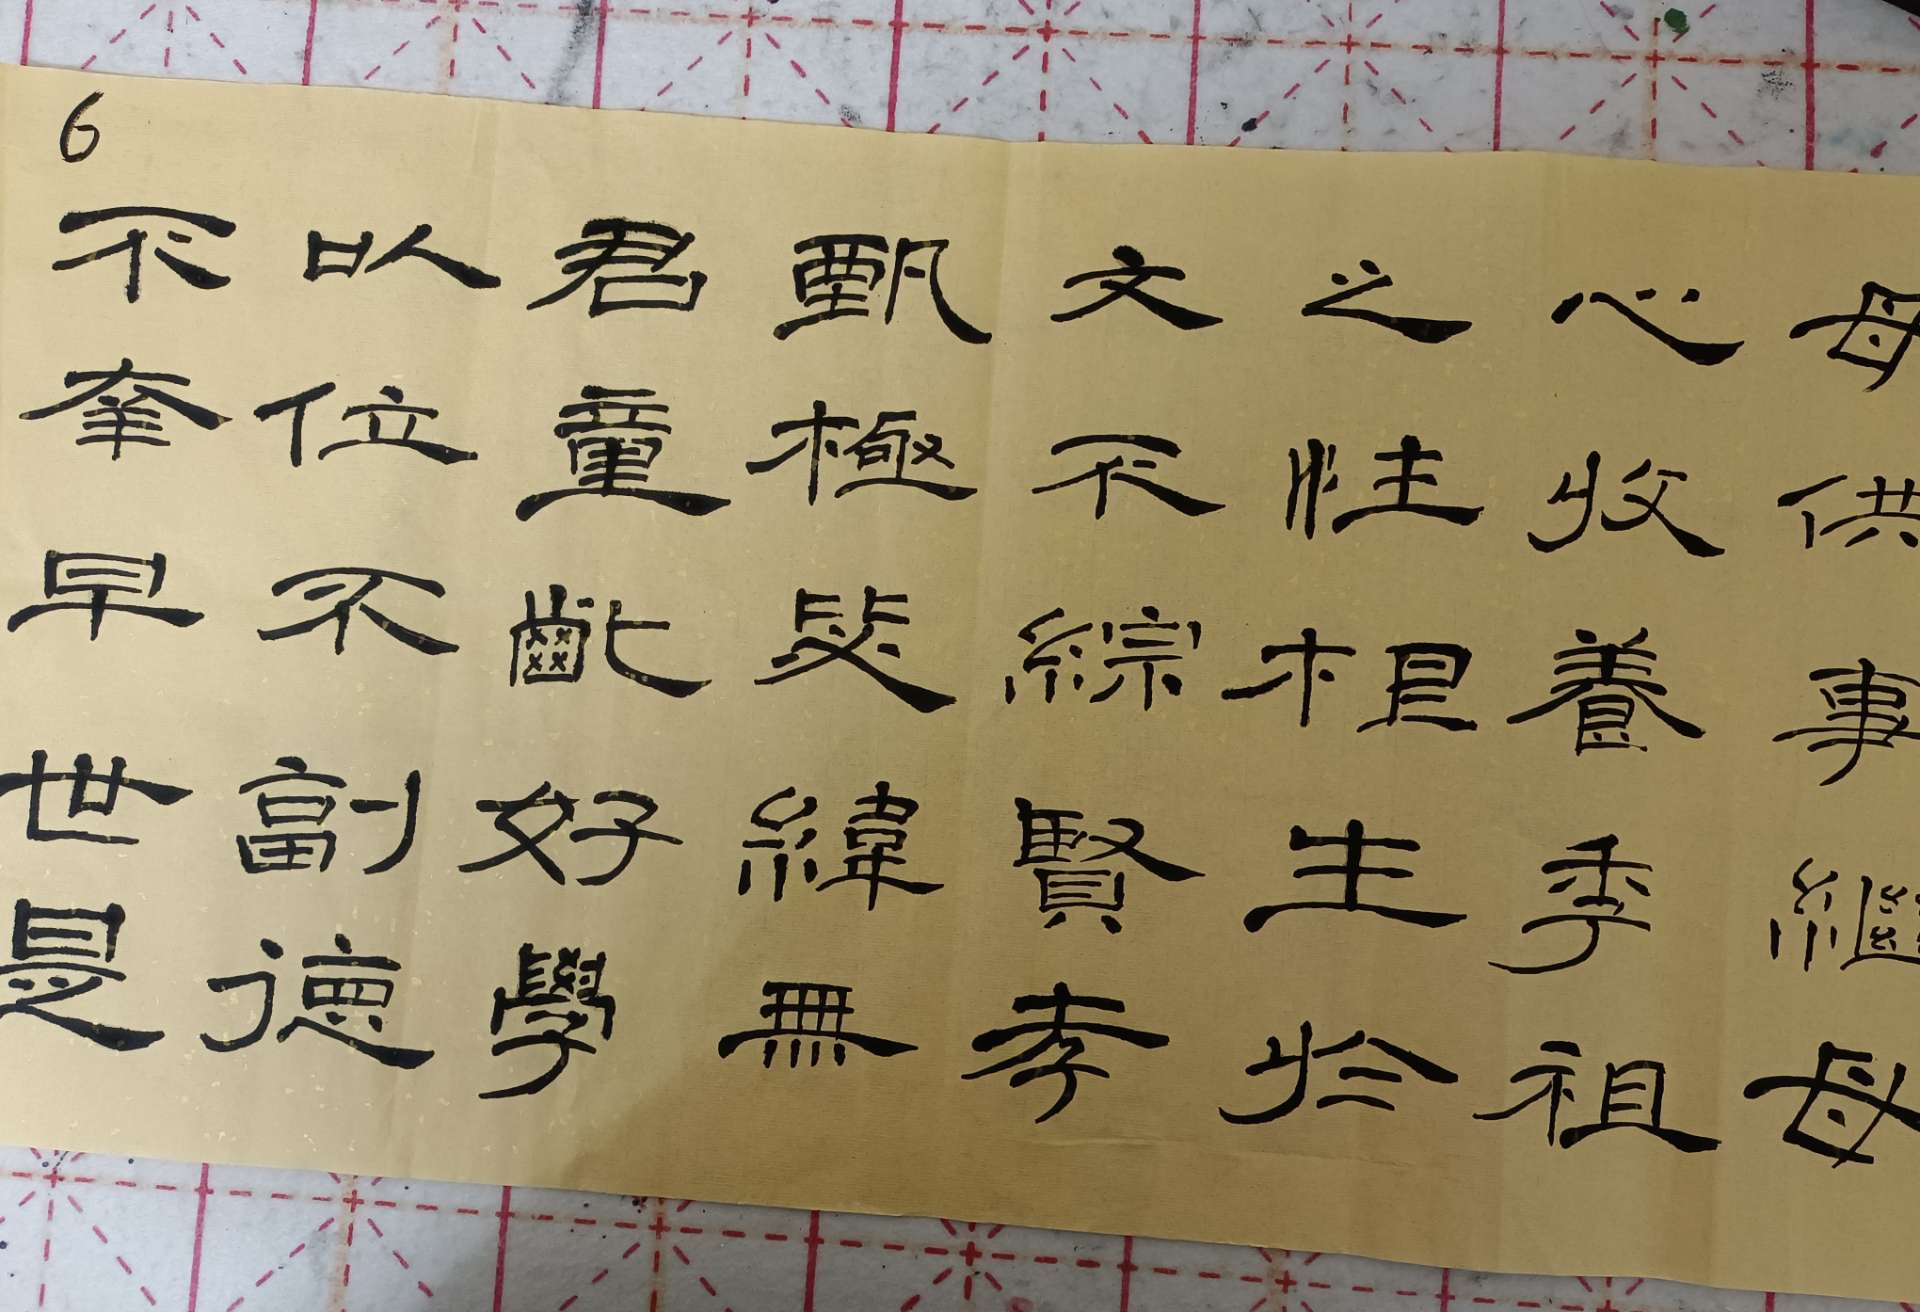 6
母供事繼母
心收養季祖
之性根生於
文不綜賢孝
甄極毖緯無
君童齔好學
以位不副德
不幸早世是